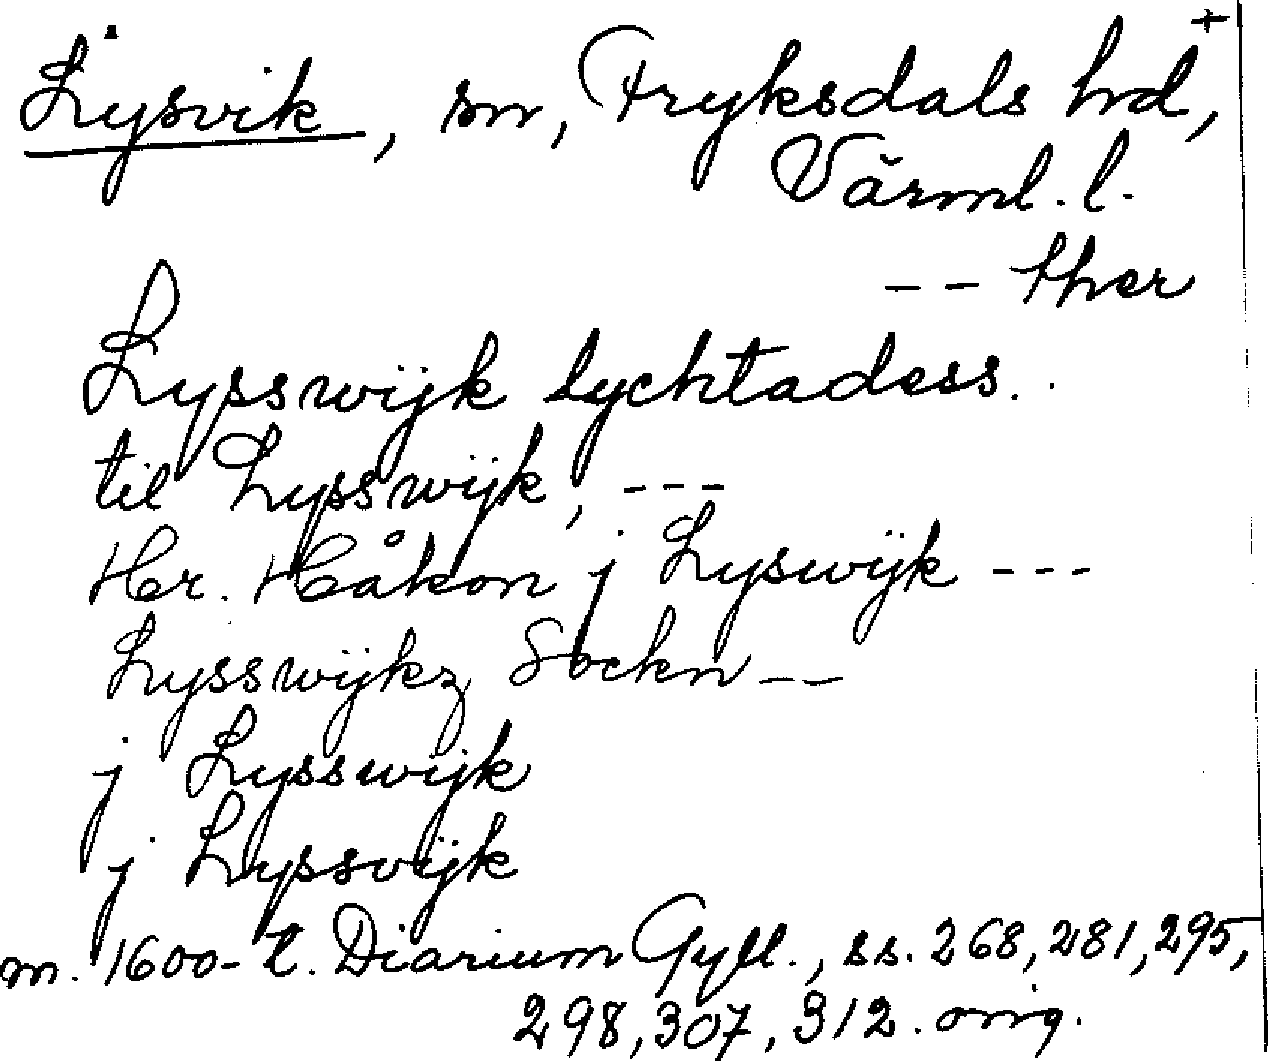 +
Lysvik, sn, Fryksdals hd,
Värml. l.
-- ther
Lysswijk lychtadess.
til Lysswijk, ---
Hr. Håkon j Lyswijk ---
Lysswijkz Sockn --
j Lysswijk
j Lyssvijk
m. 1600-t. Diarium Gyll., ss. 268, 281, 295,
298, 307, 312. orig.